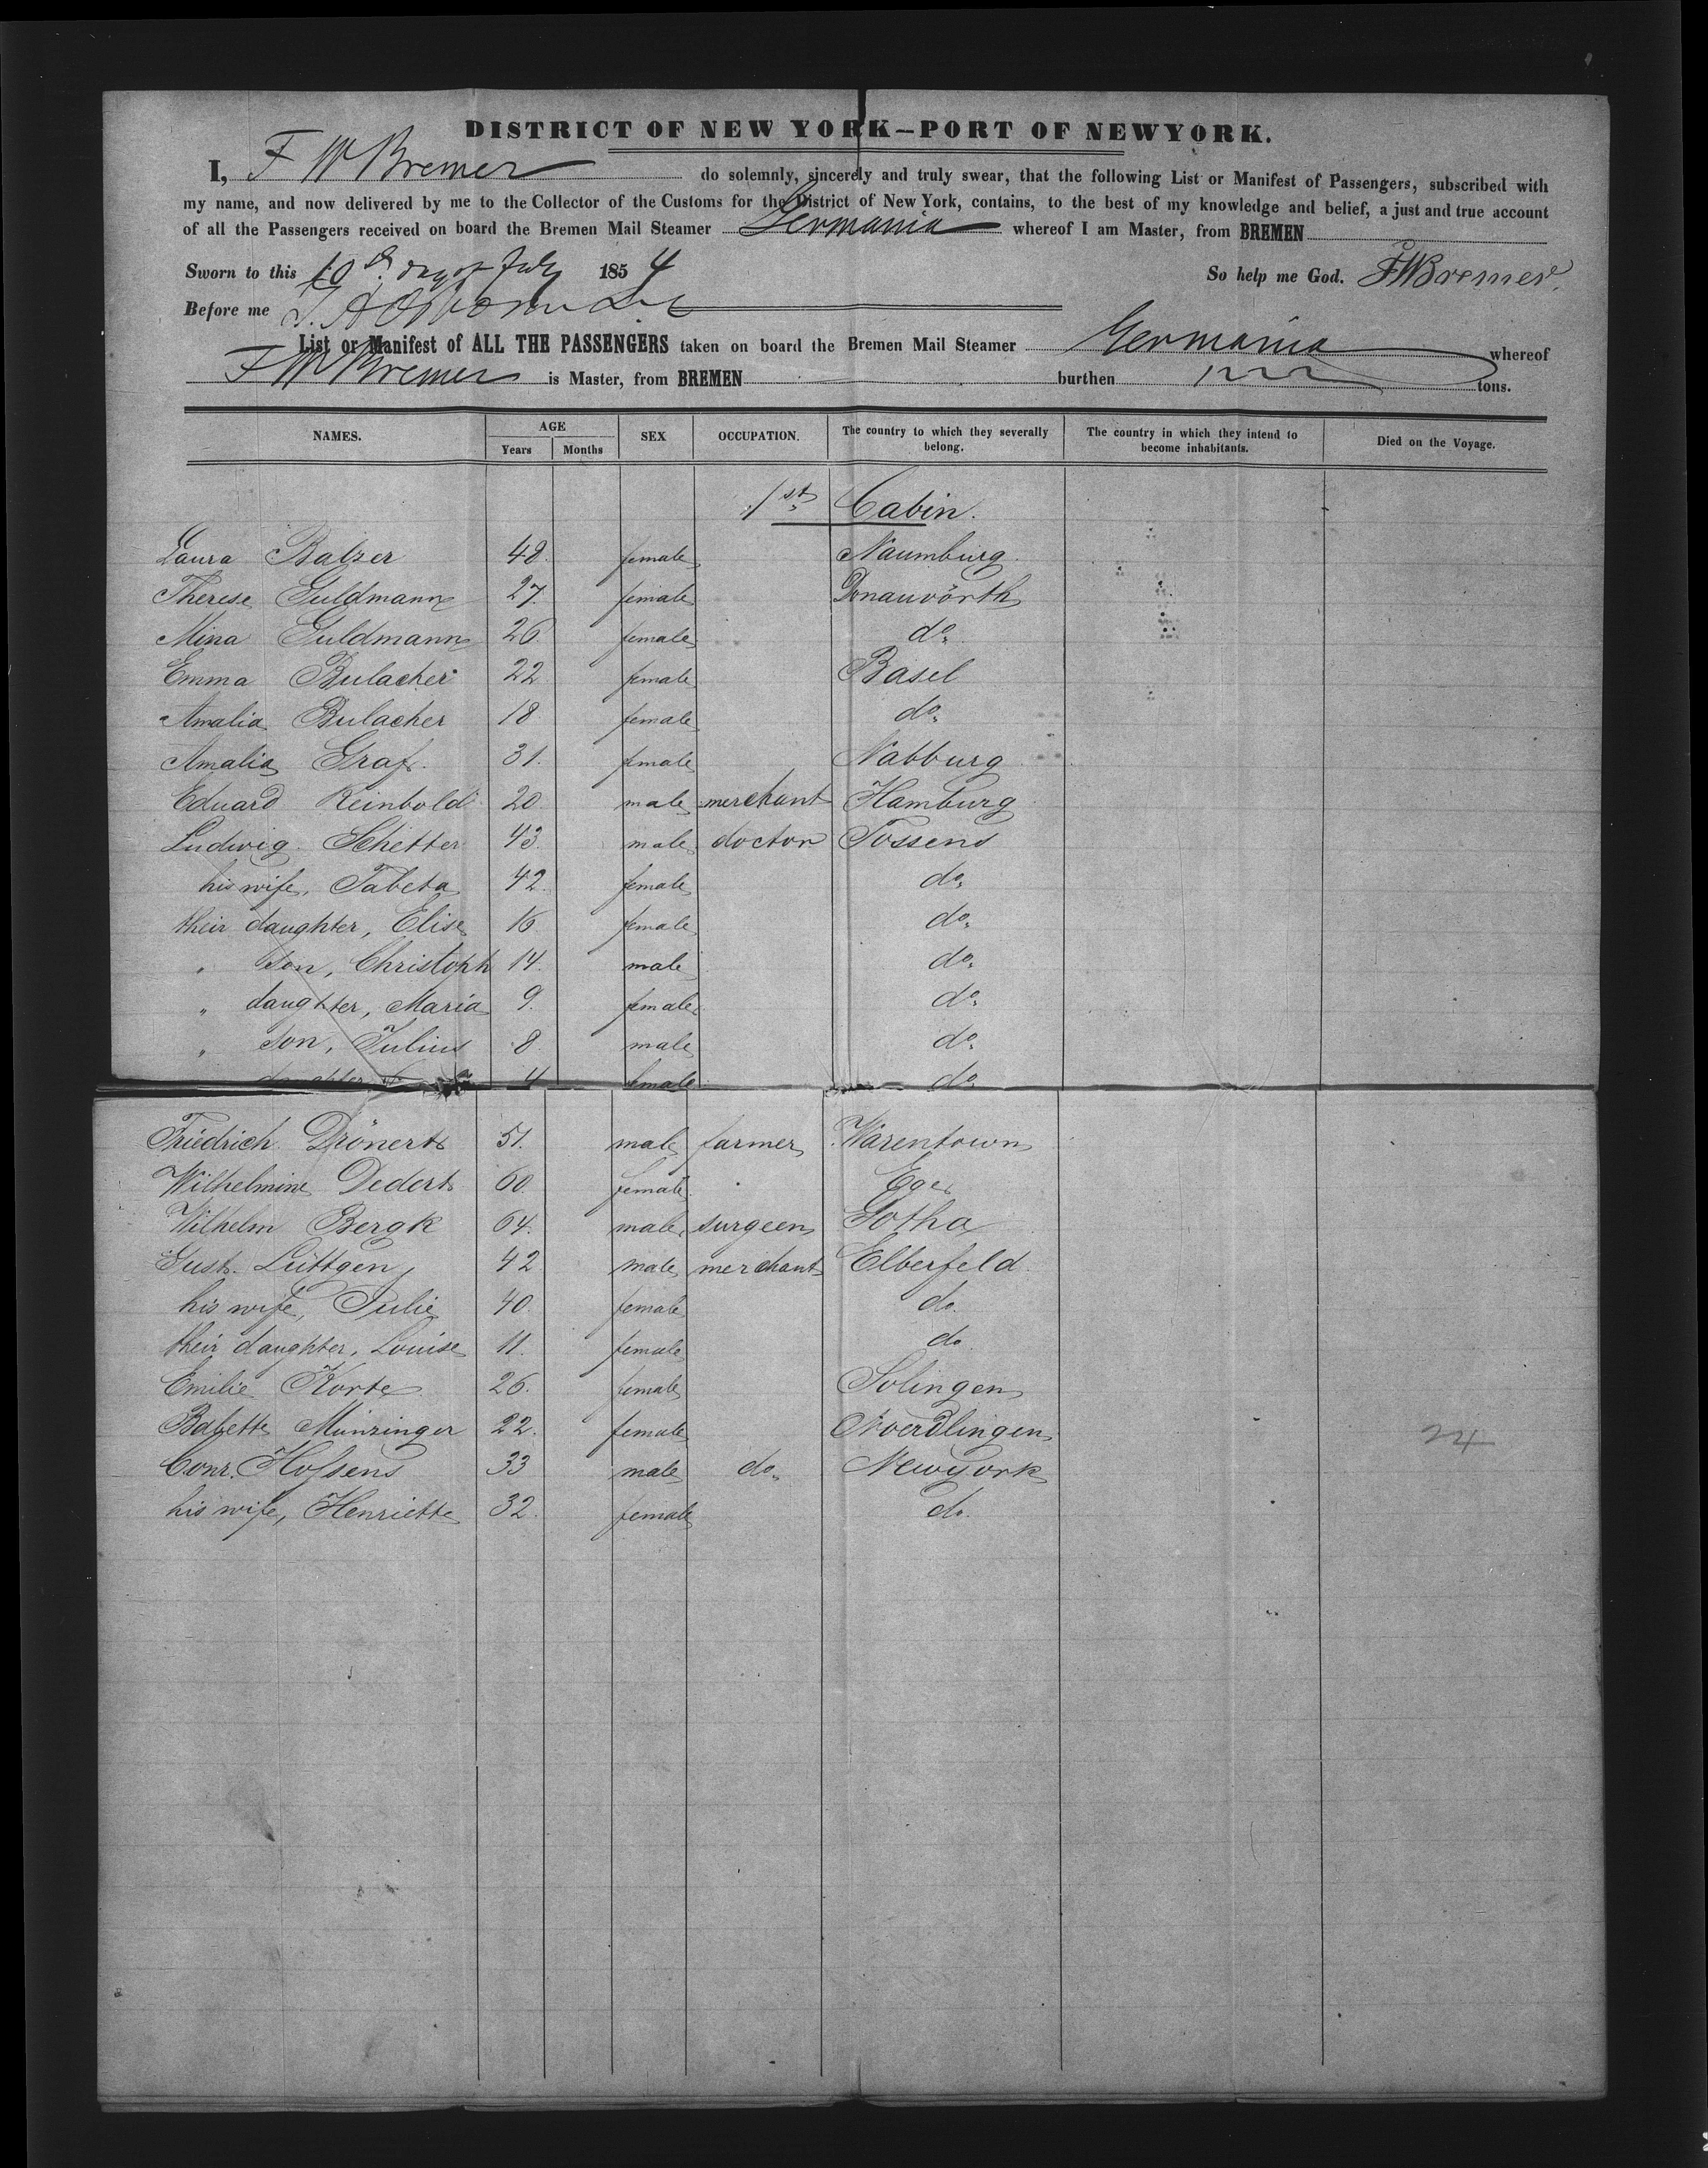 DISTRICT OF NEW YORK—PORT OF NEWYORK.
I, F W Bremer do solemnly, sincerely and truly swear, that the following List or Manifest of Passengers, subscribed with
my name, and now delivered by me to the Collector of the Customs for the District of New York, contains, to the best of my knowledge and belief, a just and true account
of all the Passengers received on board the Bremen Mail Steamer Germania whereof I am Master, from BREMEN
Sworn to this 10th day of July 1854 So help me God. FWBremer.
Before me
List or Manifest of ALL THE PASSENGERS taken on board the Bremen Mail Steamer Germania whereof
F W Bremer is Master, from BREMEN burthen tons.
NAMES. AGE Years Months SEX OCCUPATION. The country to which they severally belong. The country in which they intend to become inhabitants. Died on the Voyage.
1st Cabin.
Laura Balzer 48. female Naumburg.
Therese Guldmann 27. female Donauwörth
Mina Guldmann 26. female do.
Emma Bulacher 22 female Basel
Amalia Bulacher 18 female do.
Amalia Graf. 31. female Nabburg
Eduard Reinbold 20 male merchant Hamburg
Ludwig Schetter 43. male doctor Tossens
his wife, Tabeta 42. female do.
their daughter, Elise 16 female do.
" son, Christoph 14. male do.
" daughter, Maria 9. female do.
" son, Julius 8. male do.
daughter 4 female do.
Friedrich Drönert 51. male farmer Warentown
Wilhelmine Dedert 60. female Eger
Wilhelm Bergk 64. male surgeen Gotha
Gust. Lüttgen 42 male merchant Elberfeld.
his wife, Julie 40. female do.
their daughter, Louise 11. female do
Emilie Korte 26. female Solingen
Babette Münzinger 22. female Noerdlingen
Conr. Hofsens 33 male do. Newyork
his wife, Henriette 32. female do.
24